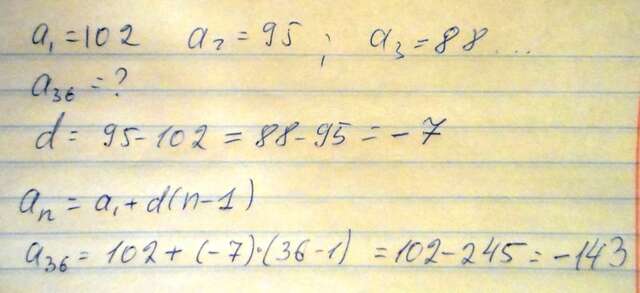 a₁ = 102 a₂ = 95 ; a₃ = 88 ...
a₃₆ = ?
d = 95 - 102 = 88 - 95 = - 7
aₙ = a₁ + d(n - 1)
a₃₆ = 102 + (-7)·(36 - 1) = 102 - 245 = -143